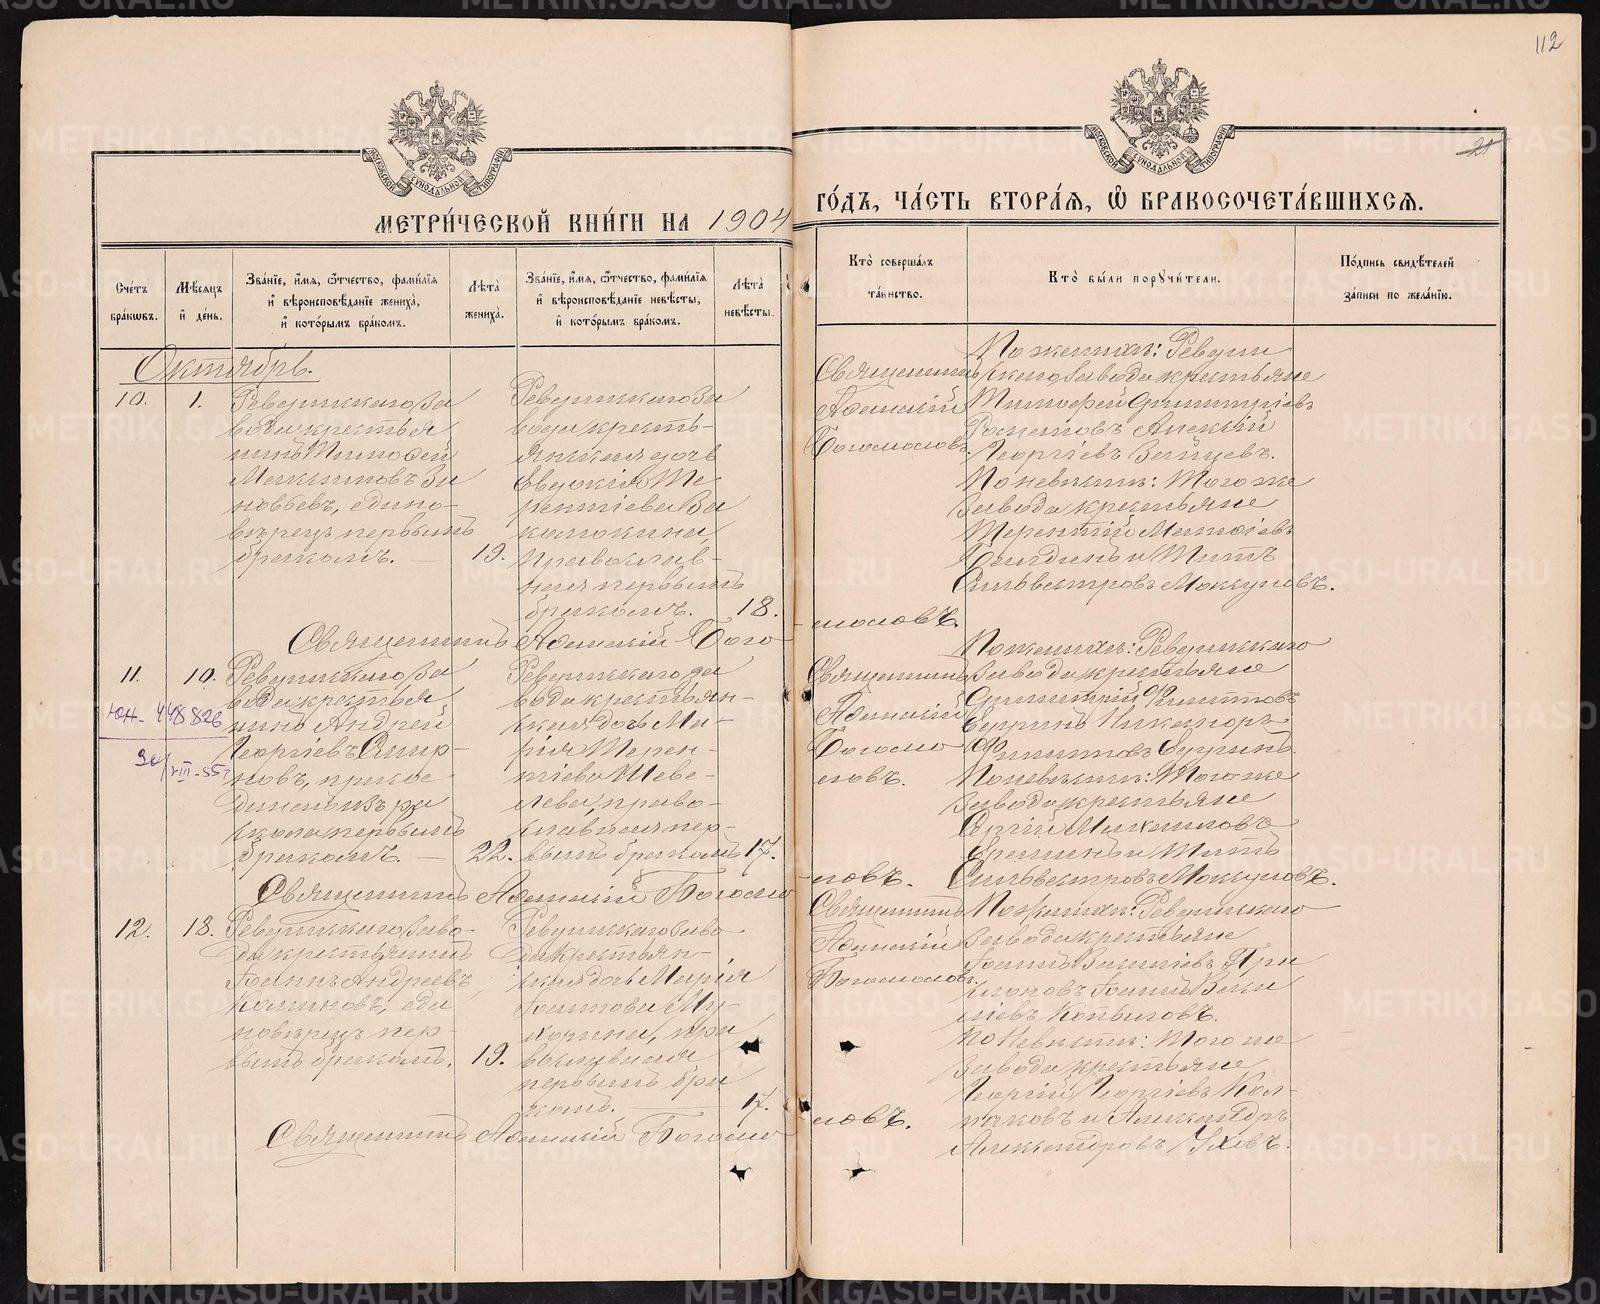 112
21
МОСКОВСКОЙ СѴНОДАЛЬНОЙ ТИПОГРАФІИ
МОСКОВСКОЙ СѴНОДАЛЬНОЙ ТИПОГРАФІИ
МЕТРИ́ЧЕСКОЙ КНИ́ГИ НА 1904
ГО́ДЪ, ЧА́СТЬ ВТОРА́Я, Ѡ҆ БРАКОСОЧЕТА́ВШИХСЯ.
Сче́тъ бра́кѡвъ.
Мѣ́сяцъ и҆ де́нь.
Зва́нїе, и҆́мя, ѻ҆́тчество, фами́лїя и҆ вѣроисповѣ́данїе жениха̀, и҆ кото́рымъ бра́комъ.
Лѣ́та жениха̀.
Зва́нїе, и҆́мя, ѻ҆́тчество, фами́лїя и҆ вѣроисповѣ́данїе невѣ́сты, и҆ кото́рымъ бра́комъ.
Лѣ́та невѣ́сты.
Кто̀ соверша́лъ та́инство.
Кто̀ бы́ли порꙋчи́тели.
По́дпись свидѣ́телей за́писи по жела́нїю.
Октябрь.
10.
1.
Ревдинскаго За
вода крестья
нинъ Тимофей
Максимовъ Зи
новьевъ, едино-
вѣрецъ первымъ
бракомъ. —
19.
Ревдинскаго За
вода кресть-
янская дочь
Евдокія Те
рентіева
православ-
ная первымъ
бракомъ.
18.
Священникъ
Афанасій
Богомоловъ.
По женихѣ: Ревдин
скаго Завода крестьяне
Тимофей Димитріевъ
Алексій
Георгіевъ Зайцевъ.
По невѣстѣ: Того же
Завода крестьяне
Терентій
и Титъ
Сильвестровъ Мокрушевъ.
Священникъ Афанасій Бого
моловъ.
11.
10.
ЮН-448826
30/VIII-55г
Ревдинскаго За
вода крестья
нинъ Андрей
Георгіевъ Смир-
новъ, присое
диненъ изъ рас
кола первымъ
бракомъ. —
22.
Ревдинскаго за
вода крестьян-
ская дочь Ма-
рія Терен-
тіева Шеве-
лева, право-
славная пер-
вымъ бракомъ
17.
Священникъ
Афанасій
Богомо
ловъ.
По женихѣ: Ревдинскаго
Завода крестьяне
Димитрій Филиповъ
Никаноръ
Филиповъ
По невѣстѣ: Того же
Завода крестьяне
Сергій Михаиловъ
Еремин и Титъ
Сильвестровъ Мокрушевъ.
Священникъ Афанасій Богомо
ловъ.
12.
18.
Ревдинскаго Заво-
да крестьянинъ
Іоаннъ Андреевъ
Калиновъ, еди
новѣрецъ пер-
вымъ бракомъ.
19.
Ревдинскаго Заво
да крестьян-
ская дочь Марія
Іоаннова Му-
хорина, пра
вославная
первымъ бра
комъ.
17.
Священникъ
Афанасій
Богомоловъ.
По женихѣ: Ревдинскаго
Завода крестьяне
Іоаннъ Василіевъ
Іоаннъ Васи
ліевъ Копыловъ.
По невѣстѣ: Того же
Завода крестьяне
Георгій Георгіевъ Кол-
маковъ и Александръ
Александровъ Уховъ.
Священникъ Афанасій Богомо
ловъ.
METRIKI.GASO-URAL.RU